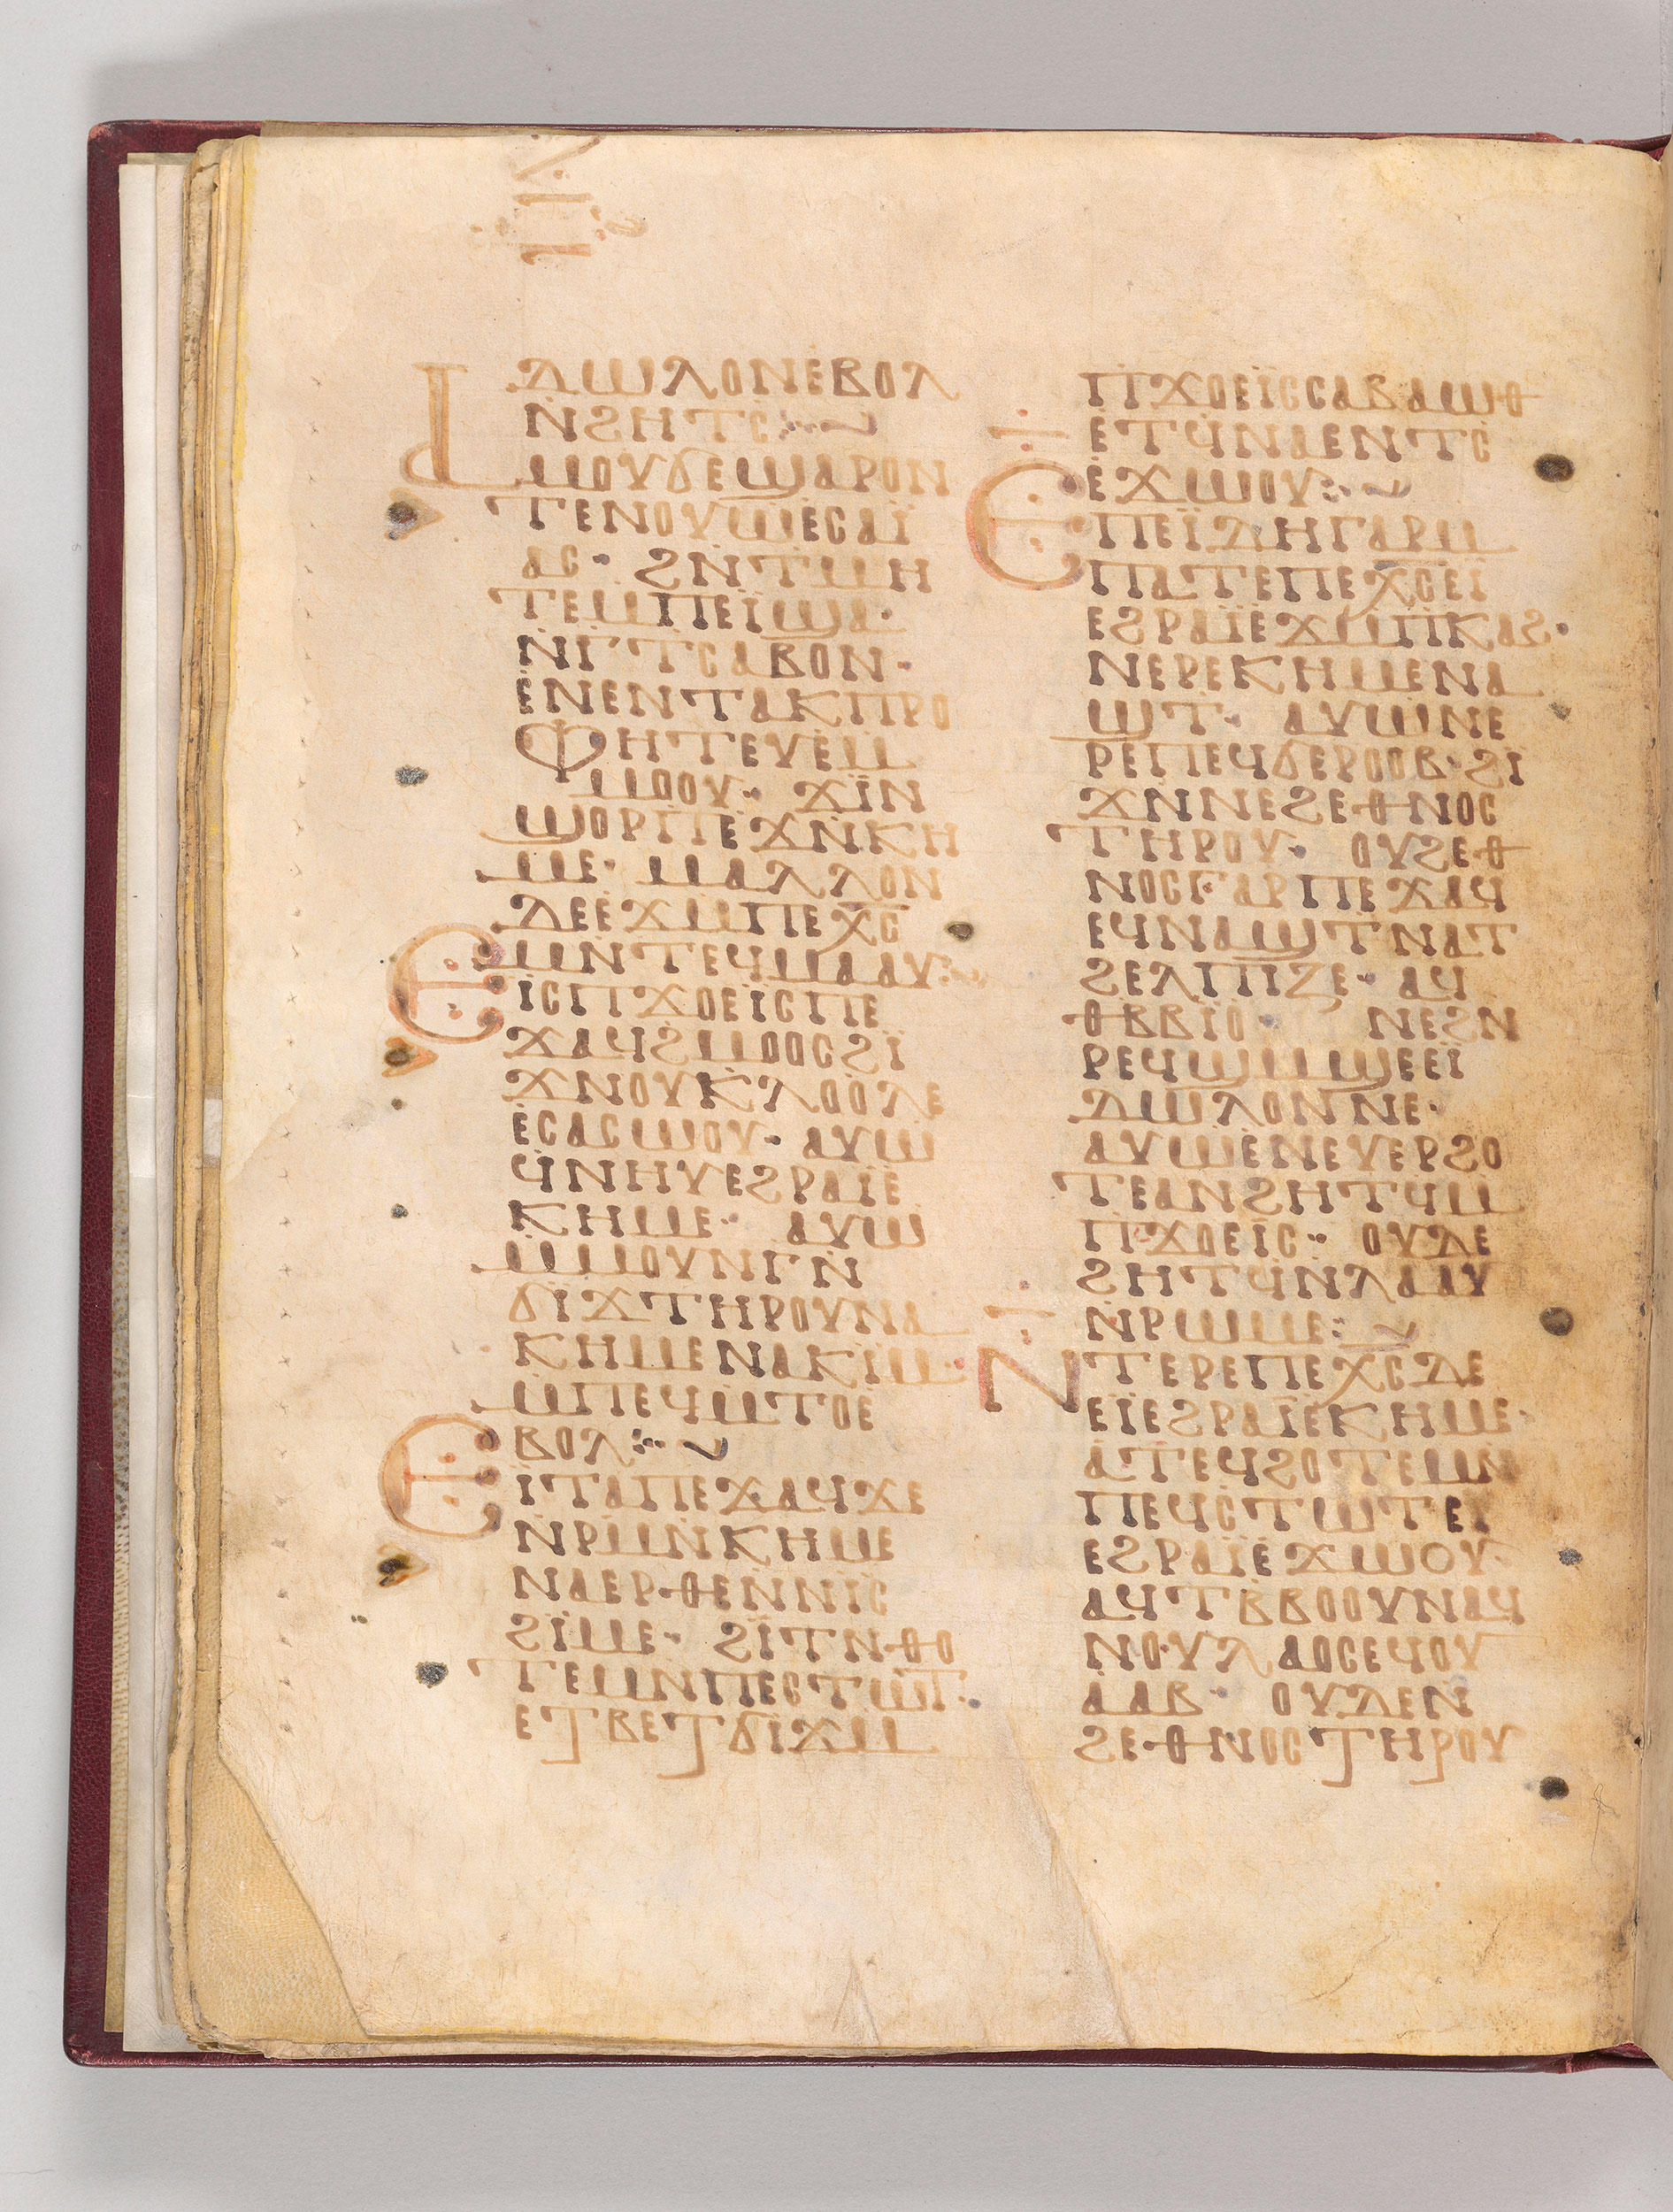 ⲇⲱⲗⲟⲛⲉ̇ⲃⲟⲗ
ⲛ̇ϩⲏⲧⲥ:··~
ⲁⲙⲟⲩϭⲉϣⲁⲣⲟⲛ
ⲧⲉⲛⲟⲩⲱ̇ⲉⲥⲁⲓ̈
ⲁⲥ· ϩⲛ̇ⲧⲙⲏ
ⲧⲉⲙⲡⲉⲓ̈ϣⲁ·
ⲛⲅ̇ⲧⲥⲁⲃⲟⲛ·
ⲉ̇ⲛⲉⲛⲧⲁⲕⲡⲣⲟ
ⲫⲏⲧⲉⲩⲉⲙ
ⲙⲟⲟⲩ· ϫⲓ̈ⲛ
ϣⲟⲣⲡⲉ̇ϫⲛ̇ⲕⲏ
ⲙⲉ· ⲙⲁⲗⲗⲟⲛ
ⲇⲉⲉ̇ϫⲙⲡⲉⲭ̅ⲥ̅
ⲙⲛ̇ⲧⲉϥⲙⲁⲁⲩ:~
ⲉⲓⲥⲡϫⲟⲉⲓ̈ⲥⲡⲉ
ϫⲁϥϩⲙⲟⲟⲥϩⲓ̈
ϫⲛⲟⲩⲕⲗⲟⲟⲗⲉ
ⲉ̇ⲥⲁⲥⲱⲟⲩ· ⲁⲩⲱ
ϥⲛⲏⲩⲉϩⲣⲁⲓ̈ⲉ̇
ⲕⲏⲙⲉ· ⲁⲩⲱ
ⲙ̇ⲙⲟⲩⲛⲅⲛ̇
ϭⲓϫⲧⲏⲣⲟⲩⲛⲁ
ⲕⲏⲙⲉⲛⲁⲕⲓⲙ·
ⲙ̇ⲡⲉϥⲙ̇ⲧⲟⲉ̇
ⲃⲟⲗ:··~
ⲉⲓ̈ⲧⲁⲡⲉϫⲁϥϫⲉ
ⲛ̇ⲣⲙⲛ̇ⲕⲏⲙⲉ
ⲛⲁⲉⲣⲑⲉⲛ̇ⲛⲓ̈ⲥ
ϩⲓ̈ⲙⲉ· ϩⲓ̈ⲧⲛⲑⲟ
ⲧⲉⲙⲛ̇ⲡⲉⲥⲧⲱⲧ·
ⲉⲧⲃⲉⲧϭⲓϫⲙ
ⲡ̇ϫⲟⲉⲓ̈ⲥⲥⲁⲃⲁⲱⲑ
ⲉ̇ⲧϥⲛⲁⲉⲛⲧⲥ
ⲉ̇ϫⲱⲟⲩ:·~
ⲉⲡⲉⲓ̈ⲇⲏⲅⲁⲣⲙ
ⲡⲁⲧⲉⲡⲉⲭ̅ⲥ̅ⲉⲓ̈
ⲉϩⲣⲁⲓ̈ⲉ̇ϫⲙⲡ̇ⲕⲁϩ·
ⲛⲉⲣⲉⲕⲏⲙⲉⲛⲁ
ϣⲧ· ⲁⲩⲱⲛⲉ
ⲣⲉⲡⲉϥϭⲉⲣⲟⲟⲃ·ϩⲓ̈
ϫⲛ̇ⲛⲉϩⲉⲑⲛⲟⲥ
ⲧⲏⲣⲟⲩ· ⲟⲩϩⲉⲑ
ⲛⲟⲥⲅⲁⲣⲡⲉϫⲁϥ
ⲉϥⲛⲁϣⲧⲛⲁⲧ
ϩⲉⲗⲡⲓⲍⲉ· ⲁϥ
ⲑⲃⲃⲓ̈ⲟ· ⲛⲉϩⲛ
ⲣⲉϥϣⲙ̇ϣⲉⲉⲓ̈
ⲇⲱⲗⲟⲛⲛⲉ·
ⲁⲩⲱⲉ̇ⲛⲉⲩⲉⲣϩⲟ
ⲧⲉⲁⲛϩⲏⲧϥⲙ
ⲡ̇ϫⲟⲉⲓ̈ⲥ· ⲟⲩⲇⲉ
ϩⲏⲧϥⲛ̇ⲗⲁⲁⲩ
ⲛ̇ⲣⲱⲙⲉ:·~
ⲛⲧⲉⲣⲉⲡⲉⲭ̅ⲥ̅ⲇⲉ
ⲉⲓ̈ⲉϩⲣⲁⲓ̈ⲉ̇ⲕⲏⲙⲉ·
ⲁ̇ⲧⲉϥϩⲟⲧⲉⲙⲛ
ⲡⲉϥⲥⲧⲱⲧⲉⲓ
ⲉϩⲣⲁⲓ̈ⲉ̇ϫⲱⲟⲩ·
ⲁϥⲧⲃ̇ⲃⲟⲟⲩⲛⲁϥ
ⲛⲟⲩⲗⲁⲟⲥⲉϥⲟⲩ
ⲁⲁⲃ· ⲟⲩⲇⲉⲛ
ϩⲉⲑⲛⲟⲥⲧⲏⲣⲟⲩ